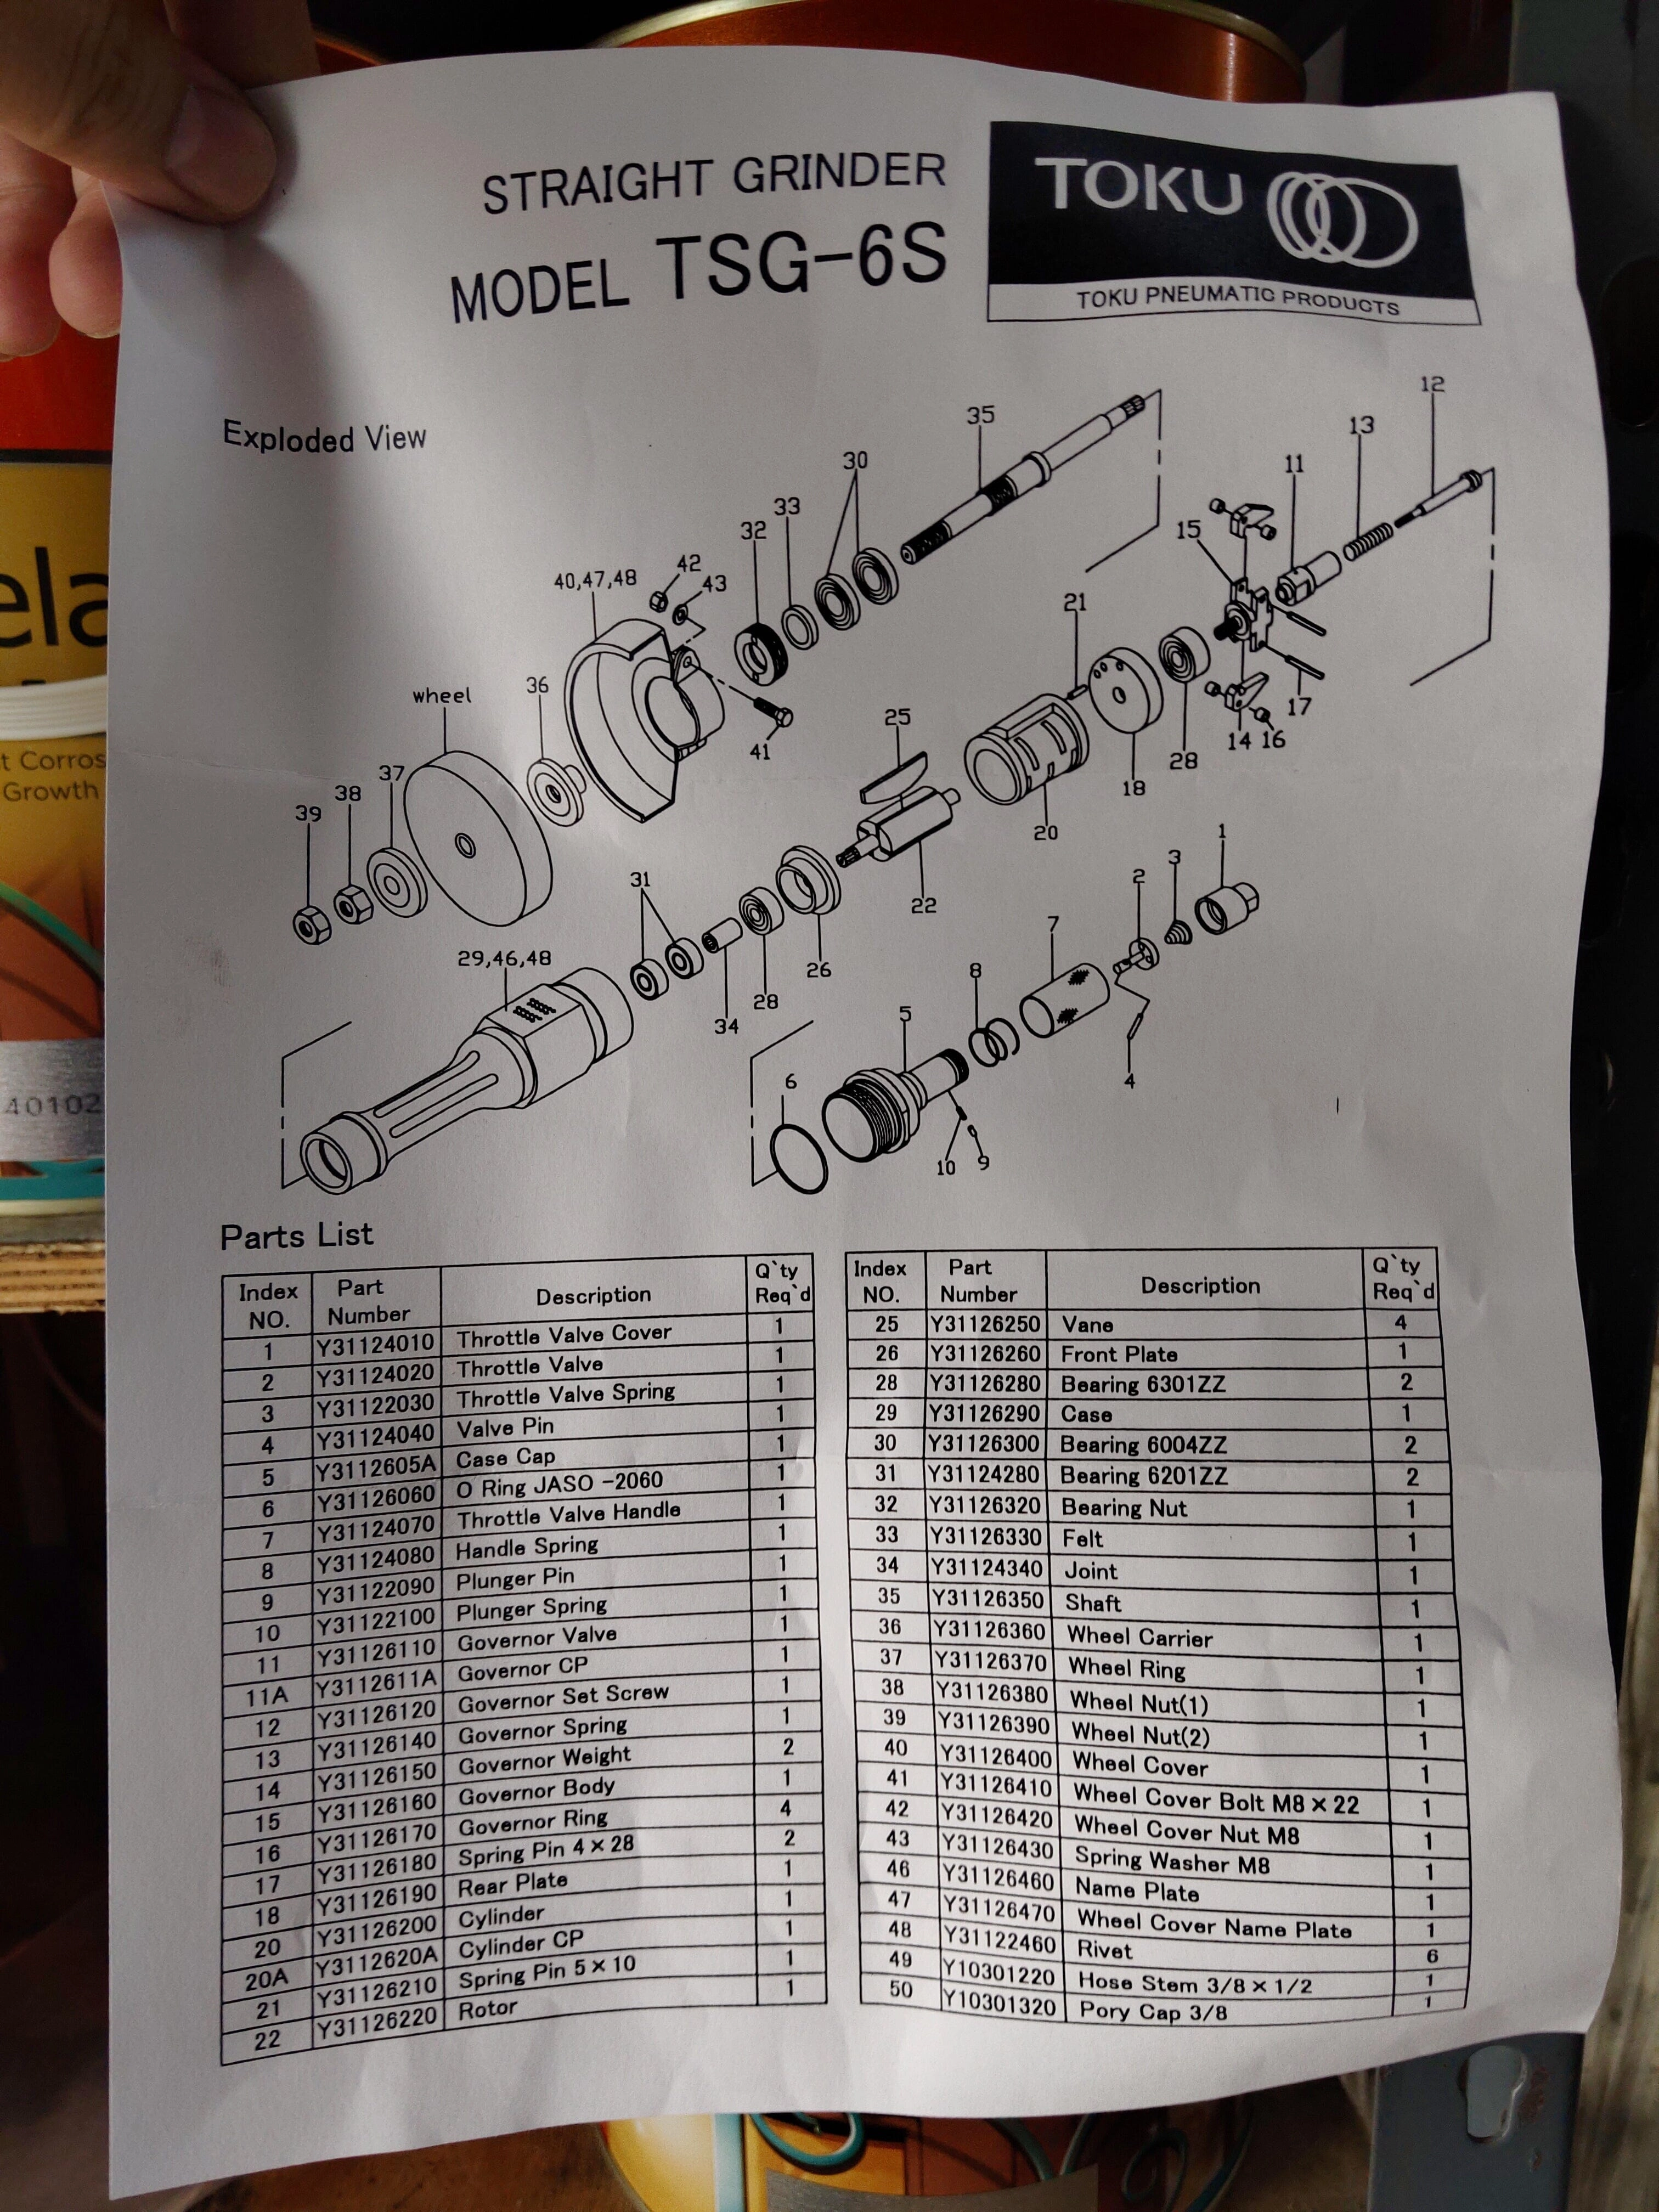 STRAIGHT GRINDER
MODEL TSG-6S
TOKU
TOKU PNEUMATIC PRODUCTS
Exploded View
12
13
35
11
30
15
33
32
42
40,47,48
43
21
17
36
wheel
41
14 16
25
28
18
37
38
39
20
1
3
2
31
22
7
26
29,46,48
8
28
34
5
4
6
10
9
Parts List
Index NO. Part Number Description Q`ty Req`d
1 Y31124010 Throttle Valve Cover 1
2 Y31124020 Throttle Valve 1
3 Y31122030 Throttle Valve Spring 1
4 Y31124040 Valve Pin 1
5 Y3112605A Case Cap 1
6 Y31126060 O Ring JASO -2060 1
7 Y31124070 Throttle Valve Handle 1
8 Y31124080 Handle Spring 1
9 Y31122090 Plunger Pin 1
10 Y31122100 Plunger Spring 1
11 Y31126110 Governor Valve 1
11A Y3112611A Governor CP 1
12 Y31126120 Governor Set Screw 1
13 Y31126140 Governor Spring 1
14 Y31126150 Governor Weight 2
15 Y31126160 Governor Body 1
16 Y31126170 Governor Ring 4
17 Y31126180 Spring Pin 4×28 2
18 Y31126190 Rear Plate 1
20 Y31126200 Cylinder 1
20A Y3112620A Cylinder CP 1
21 Y31126210 Spring Pin 5×10 1
22 Y31126220 Rotor 1
Index NO. Part Number Description Q`ty Req`d
25 Y31126250 Vane 4
26 Y31126260 Front Plate 1
28 Y31126280 Bearing 6301ZZ 2
29 Y31126290 Case 1
30 Y31126300 Bearing 6004ZZ 2
31 Y31124280 Bearing 6201ZZ 2
32 Y31126320 Bearing Nut 1
33 Y31126330 Felt 1
34 Y31124340 Joint 1
35 Y31126350 Shaft 1
36 Y31126360 Wheel Carrier 1
37 Y31126370 Wheel Ring 1
38 Y31126380 Wheel Nut(1) 1
39 Y31126390 Wheel Nut(2) 1
40 Y31126400 Wheel Cover 1
41 Y31126410 Wheel Cover Bolt M8×22 1
42 Y31126420 Wheel Cover Nut M8 1
43 Y31126430 Spring Washer M8 1
46 Y31126460 Name Plate 1
47 Y31126470 Wheel Cover Name Plate 1
48 Y31122460 Rivet 6
49 Y10301220 Hose Stem 3/8×1/2 1
50 Y10301320 Pory Cap 3/8 1
ela
t Corros
Growth
40102